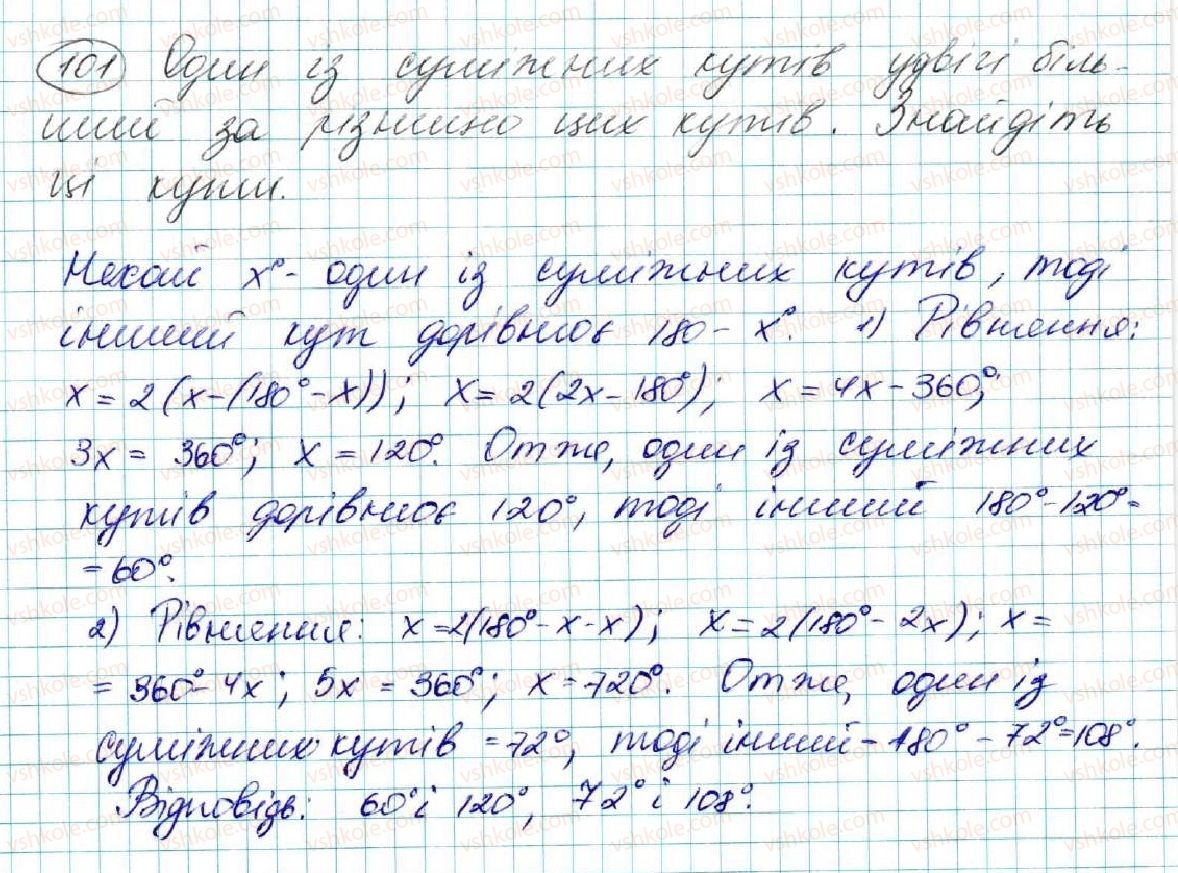 101 Один із суміжних кутів удвічі біль-
ший за різницю цих кутів. Знайдіть
ці кути.
Нехай x° - один із суміжних кутів, тоді
інший кут дорівнює 180 - x°. 1) Рівняння:
x = 2(x - (180° - x)); x = 2(2x - 180°); x = 4x - 360°;
3x = 360°; x = 120°. Отже, один із суміжних
кутів дорівнює 120°, тоді інший 180° - 120° =
= 60°.
2) Рівняння: x = 2(180° - x - x); x = 2(180° - 2x); x =
= 360° - 4x; 5x = 360°; x = 720°. Отже, один із
суміжних кутів = 72°, тоді інший - 180° - 72° = 108°.
Відповідь: 60° і 120°, 72° і 108°.